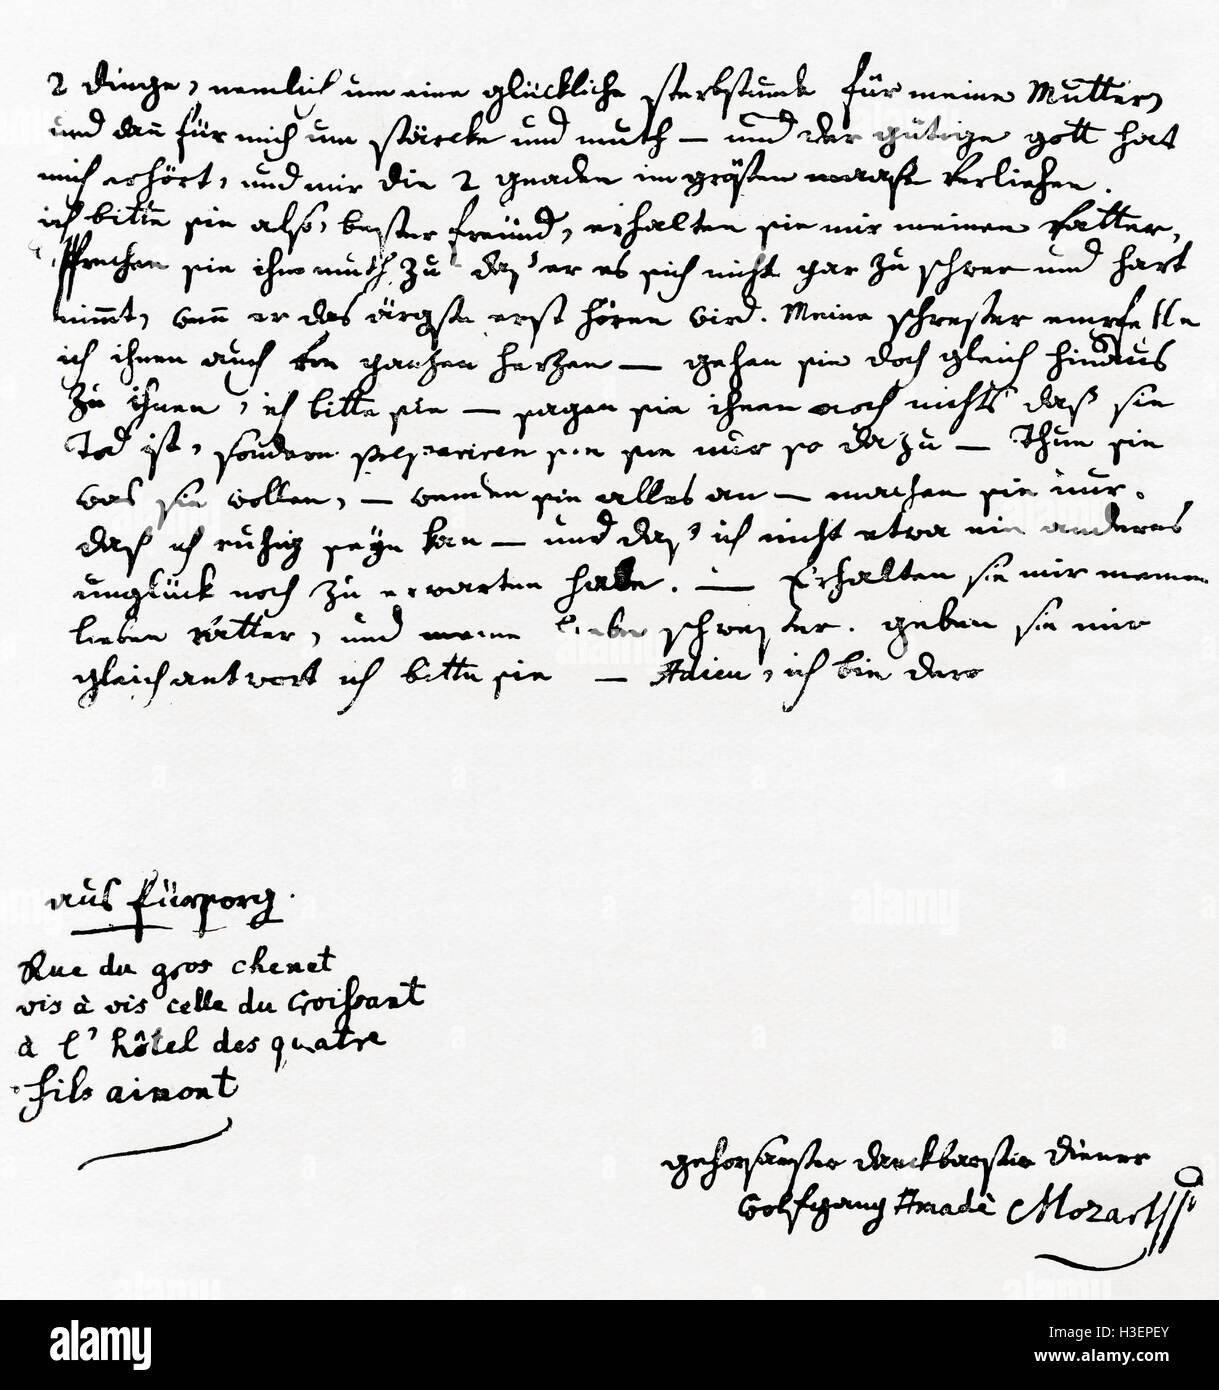 2 dinge, nemlich um eine glückliche sterbstunde für meine Mutter,
und dan̄ für mich um stärcke und muth — und der gütige gott hat
mich erhört, und mir die 2 gnaden im grösten maase verliehen.
ich bitte sie also, bester freünd, erhalten sie mir meinen vatter,
sprechen sie ihm muth zu daß er es sich nicht gar zu schwer und hart
nimmt, wen̄ er das ärgste erst hören wird. Meine schwester empfehle
ich ihnen auch von ganzen herzen — gehen sie doch gleich hinaus
zu ihnen, ich bitte sie — sagen sie ihnen noch nichts daß sie
Tod ist, sondern præpariren sie sie nur so dazu — Thun sie
was sie wollen, — wenden sie alles an — machen sie nur
daß ich ruhig seyn kan — und daß ich nicht etwa ein anderes
unglück noch zu erwarten habe. — Erhalten sie mir meinen
lieben vatter, und meine liebe schwester. geben sie mir
gleich antwort ich bitte sie — Adieu, ich bin dero
aus fürsorg.
Rue du gros chenet
vis à vis celle du Croissant
à l'hôtel des quatre
fils aimont
gehorsamster danckbarster diener
Wolfgang Amadè Mozart
alamy
Image ID: H3EPEY
www.alamy.com